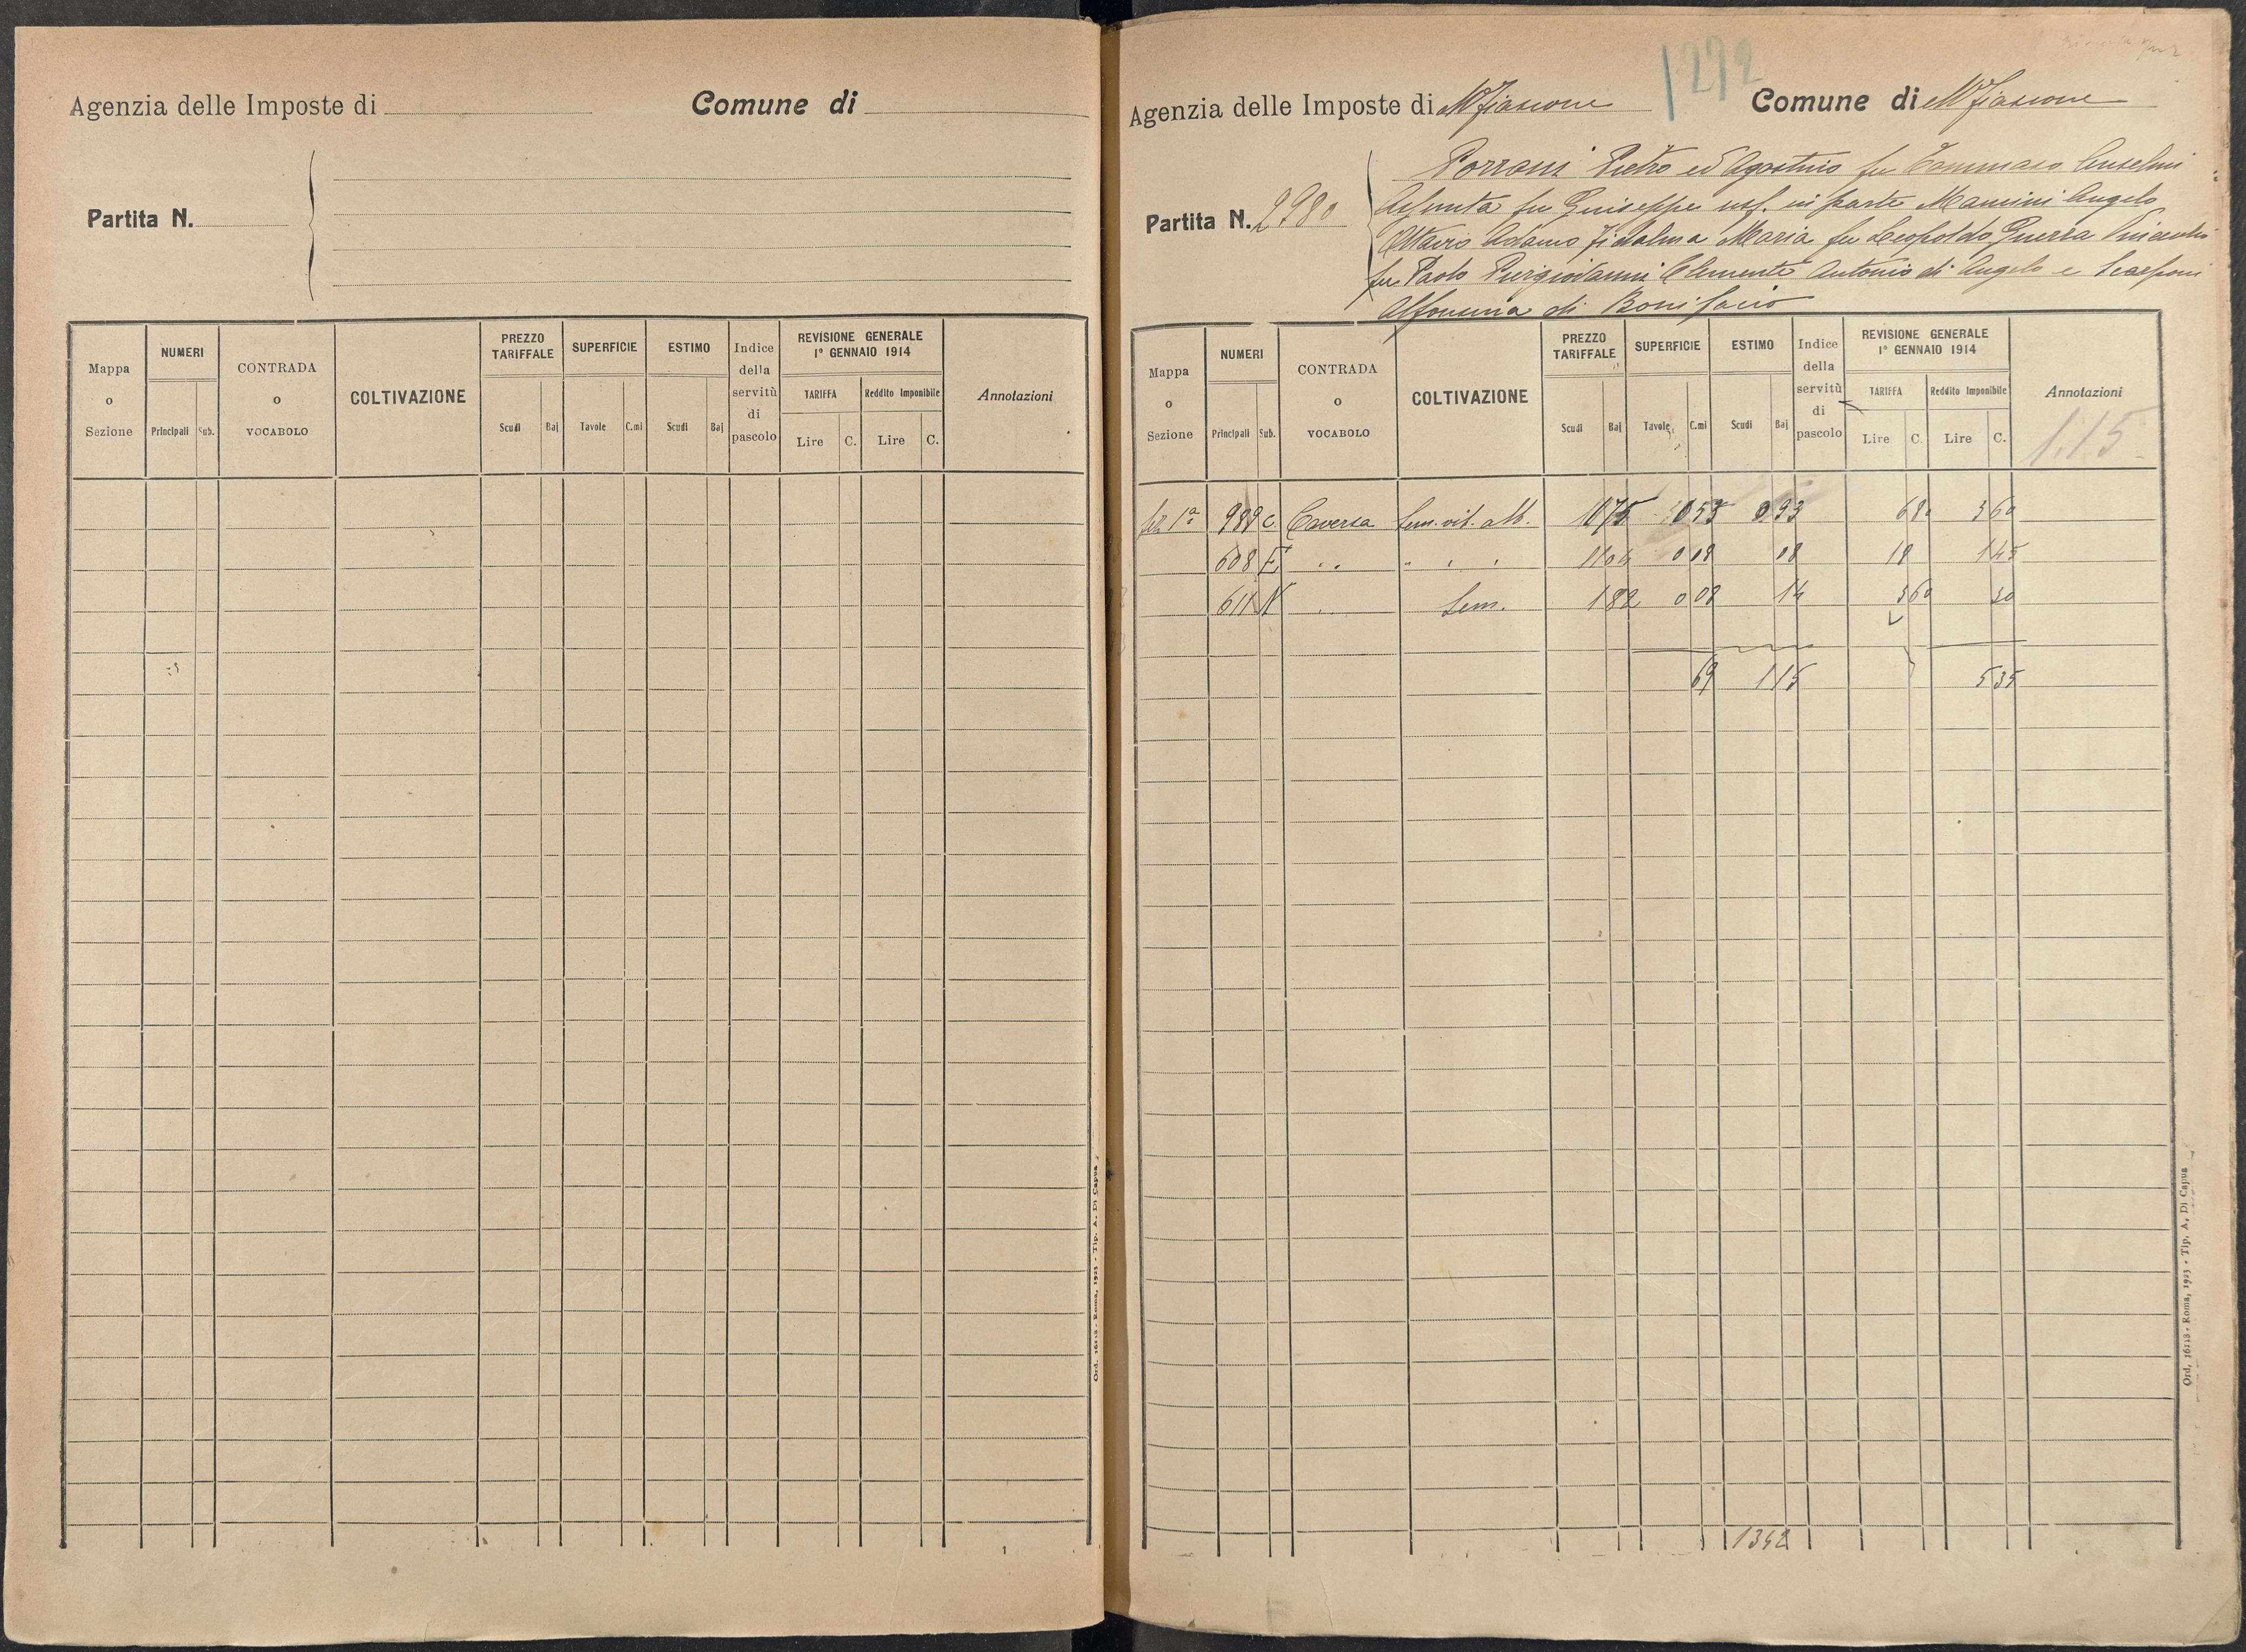 Agenzia delle Imposte di Comune di
Partita N.
Mappa o Sezione
NUMERI
Principali Sub.
CONTRADA o VOCABOLO
COLTIVAZIONE
PREZZO TARIFFALE
Scudi Baj
SUPERFICIE
Tavole C.mi
ESTIMO
Scudi Baj
Indice della servitù di pascolo
REVISIONE GENERALE
1° GENNAIO 1914
TARIFFA Reddito Imponibile
Lire C. Lire C.
Annotazioni
Ord. 16118 - Roma, 1923 - Tip. A. Di Capua
1272
Agenzia delle Imposte di Mfiascone Comune di Mfiascone
Partita N. 2980
Porroni Pietro ed Agostino fu Tommaso Anselmi
Assunta fu Giuseppe usf. in parte Mancini Angelo
Ottavio Adamo Fidalma Maria fu Leopoldo Guerra
fu Paolo Piergiovanni Clemente Antonio di Angelo e
Alfonsina di Bonifacio
Mappa o Sezione
NUMERI
Principali Sub.
CONTRADA o VOCABOLO
COLTIVAZIONE
PREZZO TARIFFALE
Scudi Baj
SUPERFICIE
Tavole C.mi
ESTIMO
Scudi Baj
Indice della servitù di pascolo
REVISIONE GENERALE
1° GENNAIO 1914
TARIFFA Reddito Imponibile
Lire C. Lire C.
Annotazioni
1.15
1ª 989 c. Caversa Sem. vit. alb. 1075 053 093 680 360
608 E " " " " " 1104 018 08 18 145
611 N " Sem. 182 008 14 360 30
69 115 535
1342
Ord. 16118 - Roma, 1923 - Tip. A. Di Capua